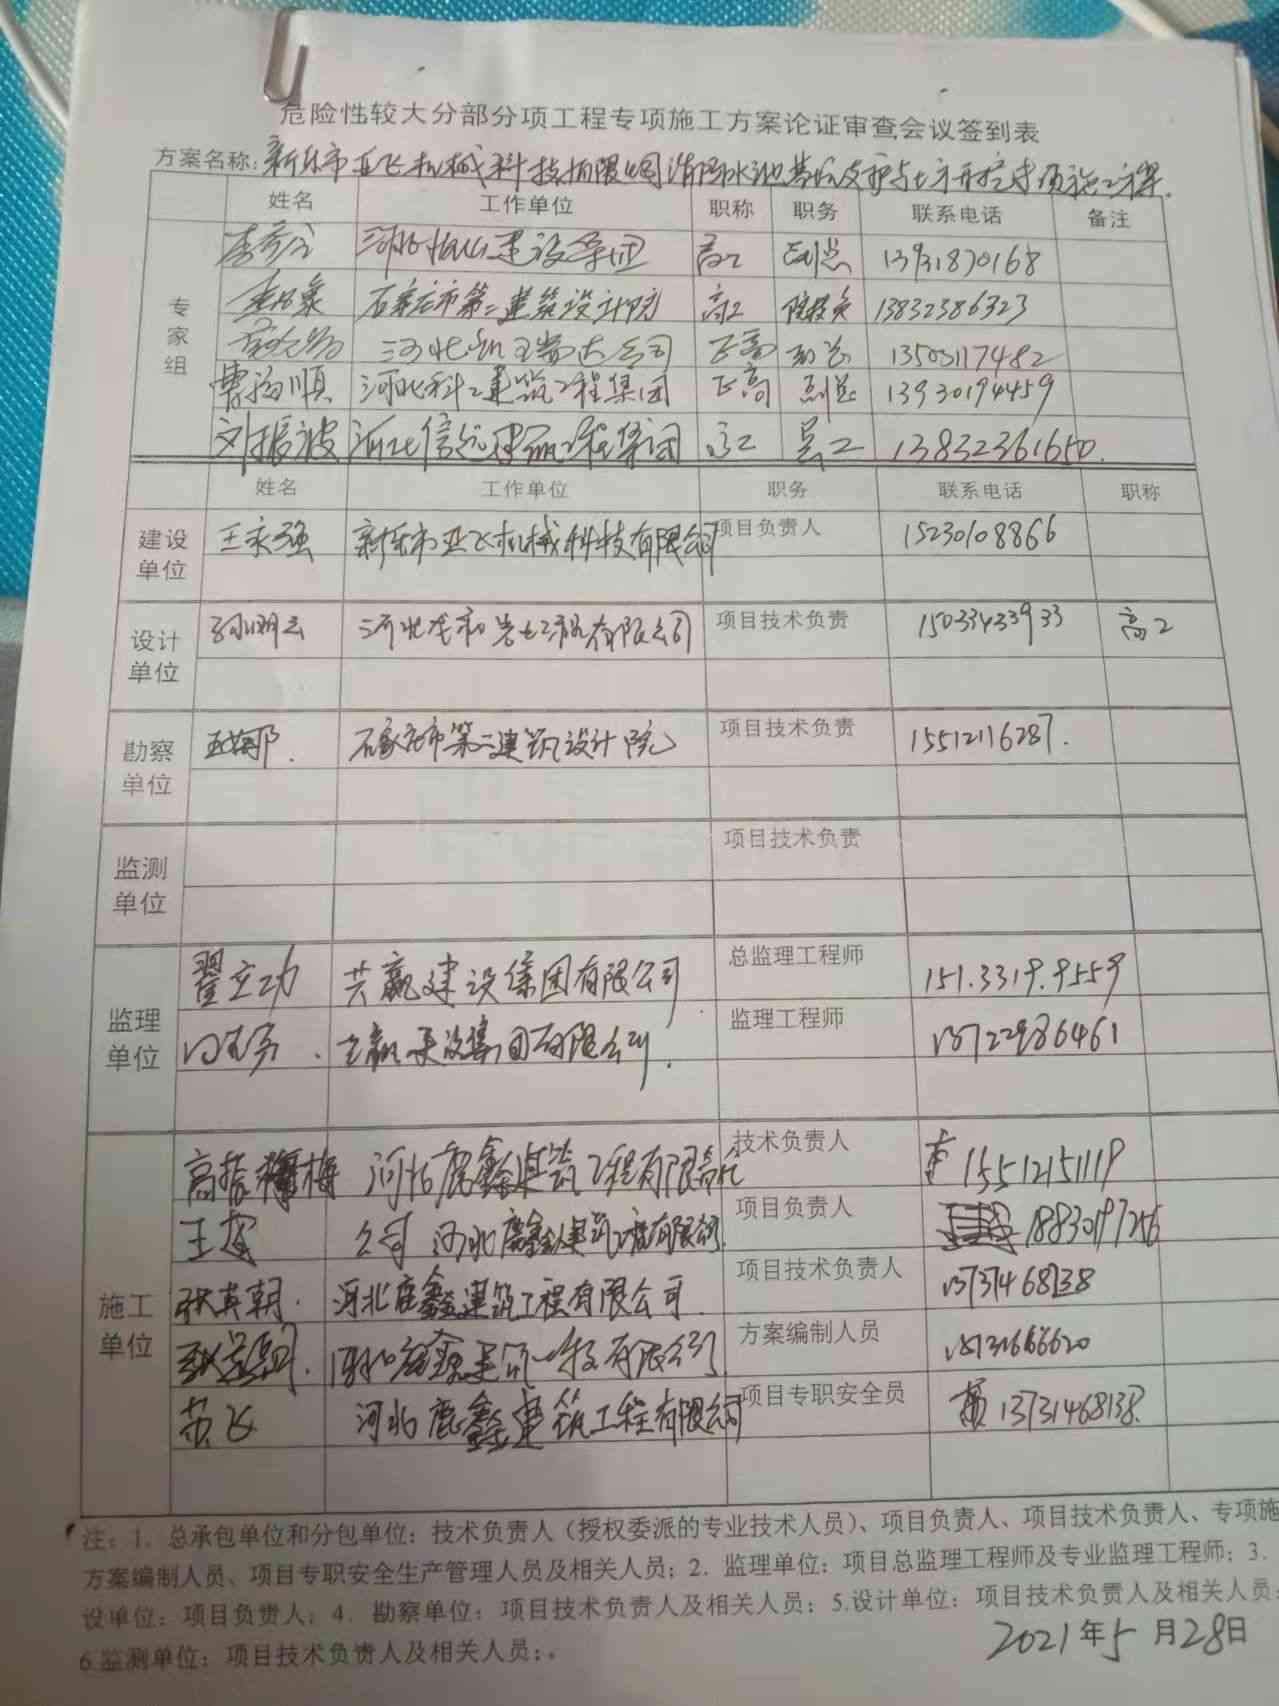 危险性较大分部分项工程专项施工方案论证审查会议签到表
方案名称:新乐市亚飞机械科技有限公司消防水池基坑支护与土方开挖专项施工方案
姓名 工作单位 职称 职务 联系电话 备注
专家组
河北 建设集团 高工 副总 13931870168
石家庄市第二建筑设计院 高工 13832386323
河北 公司 正高 13503117482
曹福顺 河北科工建筑工程集团 正高 副总 13930194459
刘振波 河北信远建筑工程集团 高工 总工 13832361650.
姓名 工作单位 职务 联系电话 职称
建设单位 王永强 新乐市亚飞机械科技有限公司 项目负责人 15230108866
设计单位 有限公司 项目技术负责 15033433933 高工
勘察单位 石家庄市第二建筑设计院 项目技术负责 15512116287.
监测单位 项目技术负责
监理单位 翟立功 共赢建设集团有限公司 总监理工程师 151.3319.9559
共赢建设集团有限公司. 监理工程师 13722986461
施工单位
高振梅 河北鹿鑫建筑工程有限 技术负责人 15512151119
公司 河北鹿鑫建筑工程有限公司. 项目负责人 18830197256
张真朝. 河北鹿鑫建筑工程有限公司 项目技术负责人 13731468138
方案编制人员
苏飞 河北鹿鑫建筑工程有限公司 项目专职安全员 13731468138.
注：1. 总承包单位和分包单位：技术负责人（授权委派的专业技术人员）、项目负责人、项目技术负责人、专项施
方案编制人员、项目专职安全生产管理人员及相关人员；2. 监理单位：项目总监理工程师及专业监理工程师；3.
设单位：项目负责人；4. 勘察单位：项目技术负责人及相关人员；5.设计单位：项目技术负责人及相关人员；
6.监测单位：项目技术负责人及相关人员；。
2021年5月28日